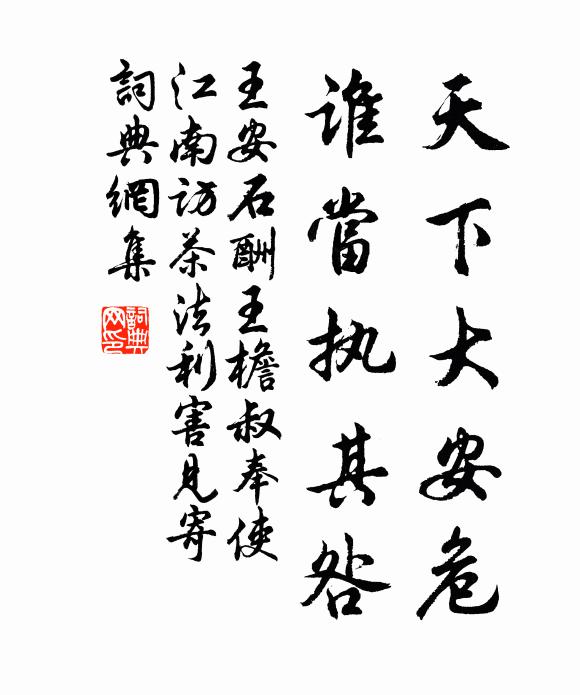 天下大安危
谁當执其咎
王安石酬王檐叔奉使
江南访茶法利害见寄
词典網集
詞典网印